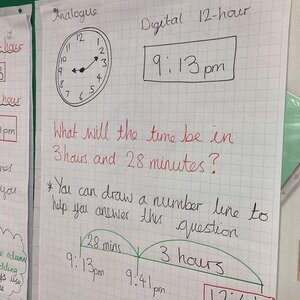 Analogue
Digital 12-hour
12
1
2
3
4
5
6
7
8
9
10
11
9:13pm
What will the time be in
3 hours and 28 minutes?
* You can draw a number line to
help you answer this question
28 mins
3 hours
9:13pm
9:41pm
pm